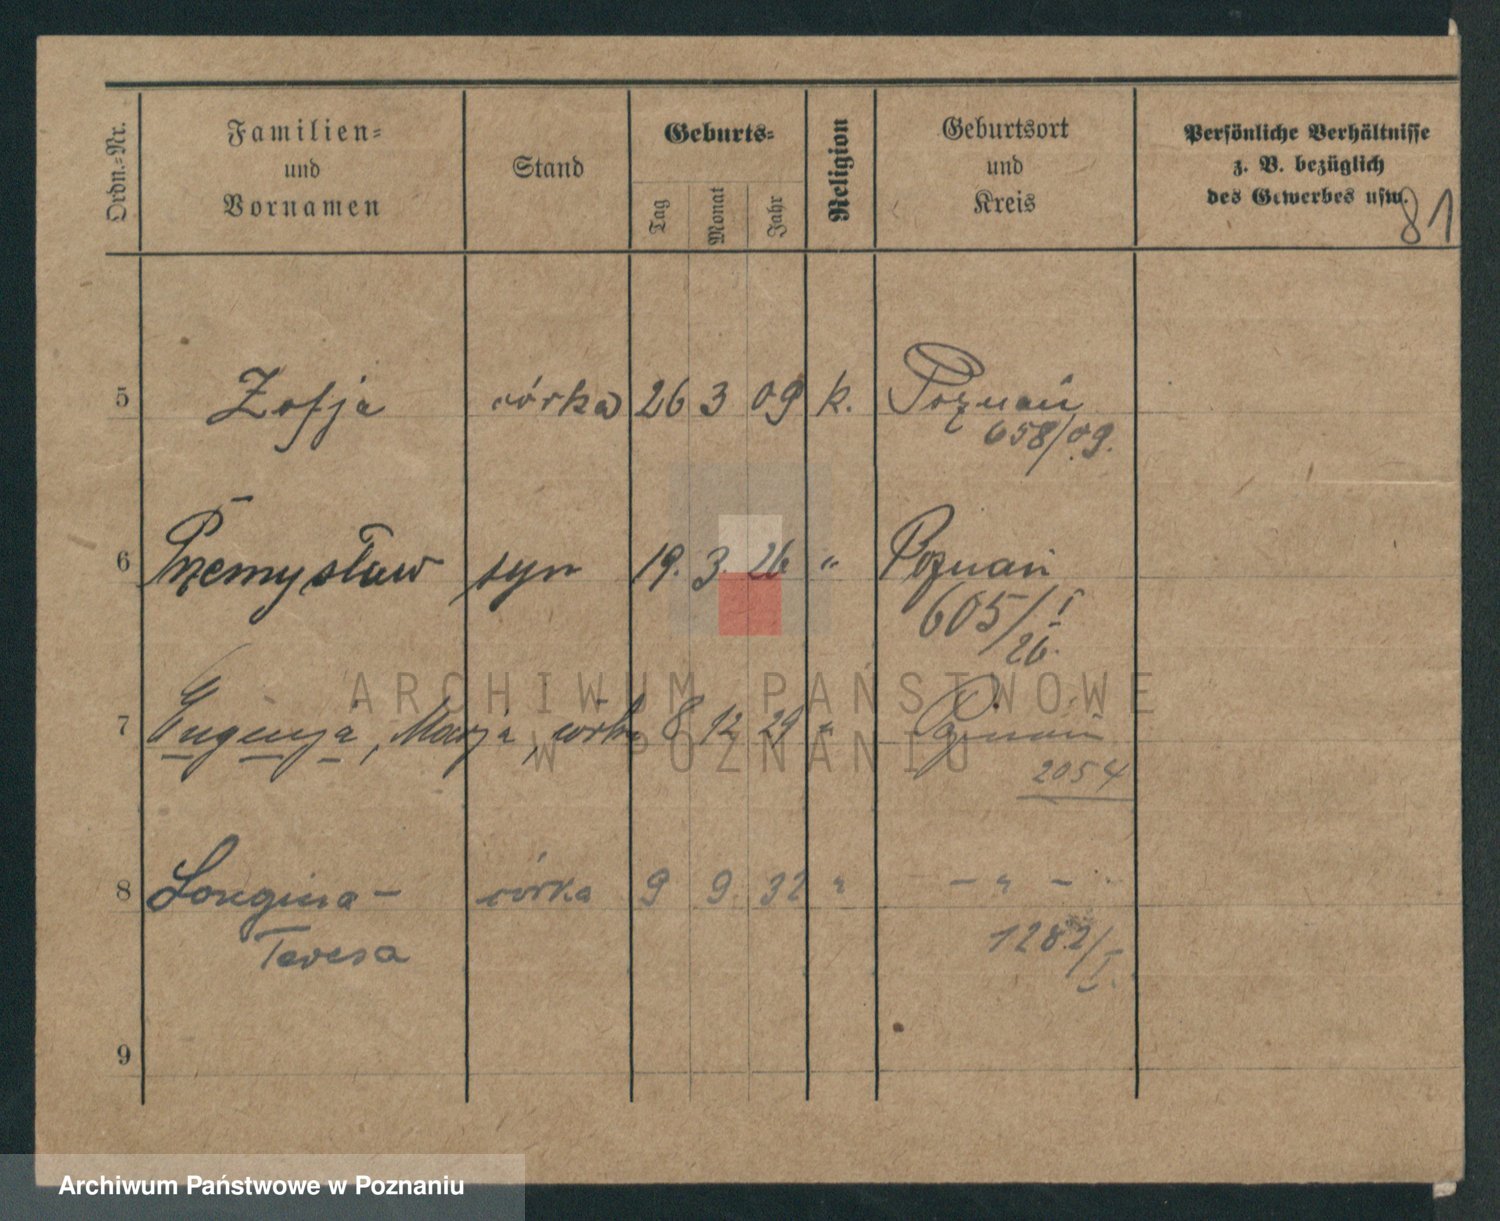 Ordn.-Nr.
Familien-
und
Vornamen
Stand
Geburts-
Tag
Monat
Jahr
Religion
Geburtsort
und
Kreis
Persönliche Verhältnisse
z. B. bezüglich
des Gewerbes usw.
81
5 Zofja córka 26 3 09 k. Poznań
658/09.
6 Przemysław syn 19. 3. 26 " Poznań
605/I
26.
7 Eugenja, Marja, córka 8 12 29 " Poznań
2054
8 Longina- córka 9 9. 32 " - " -
Teresa
1282/I.
9
ARCHIWUM PAŃSTWOWE
W POZNANIU
Archiwum Państwowe w Poznaniu